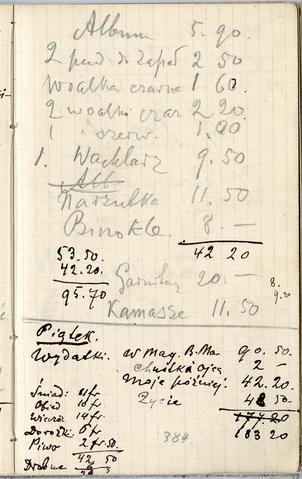 Album 5. 90.
2 pud. do zapał 2 50
Woalka czarna 1 60.
2 woalki czar 2. 20
1 szerw. 1. 00
1. Wachlarz 9. 50
Alb
Narzutka 11. 50
Binokle. 8. —
42 20
53. 50.
42. 20.
95. 70
Garnitur 20. —
8.
9. 20
Kamasze 11. 50
Piątek.
Wydatki. w Mag. B. Ma. 90. 50.
2 —
Moje później. 42. 20.
Życie 48 50.
177 20
183 20
Śniad: 4 fr
Obiad 16 fr
Wieczór 14 fr
Dorożki 6 fr
Piwo 2 fr 50.
42. 50
Drobne
384